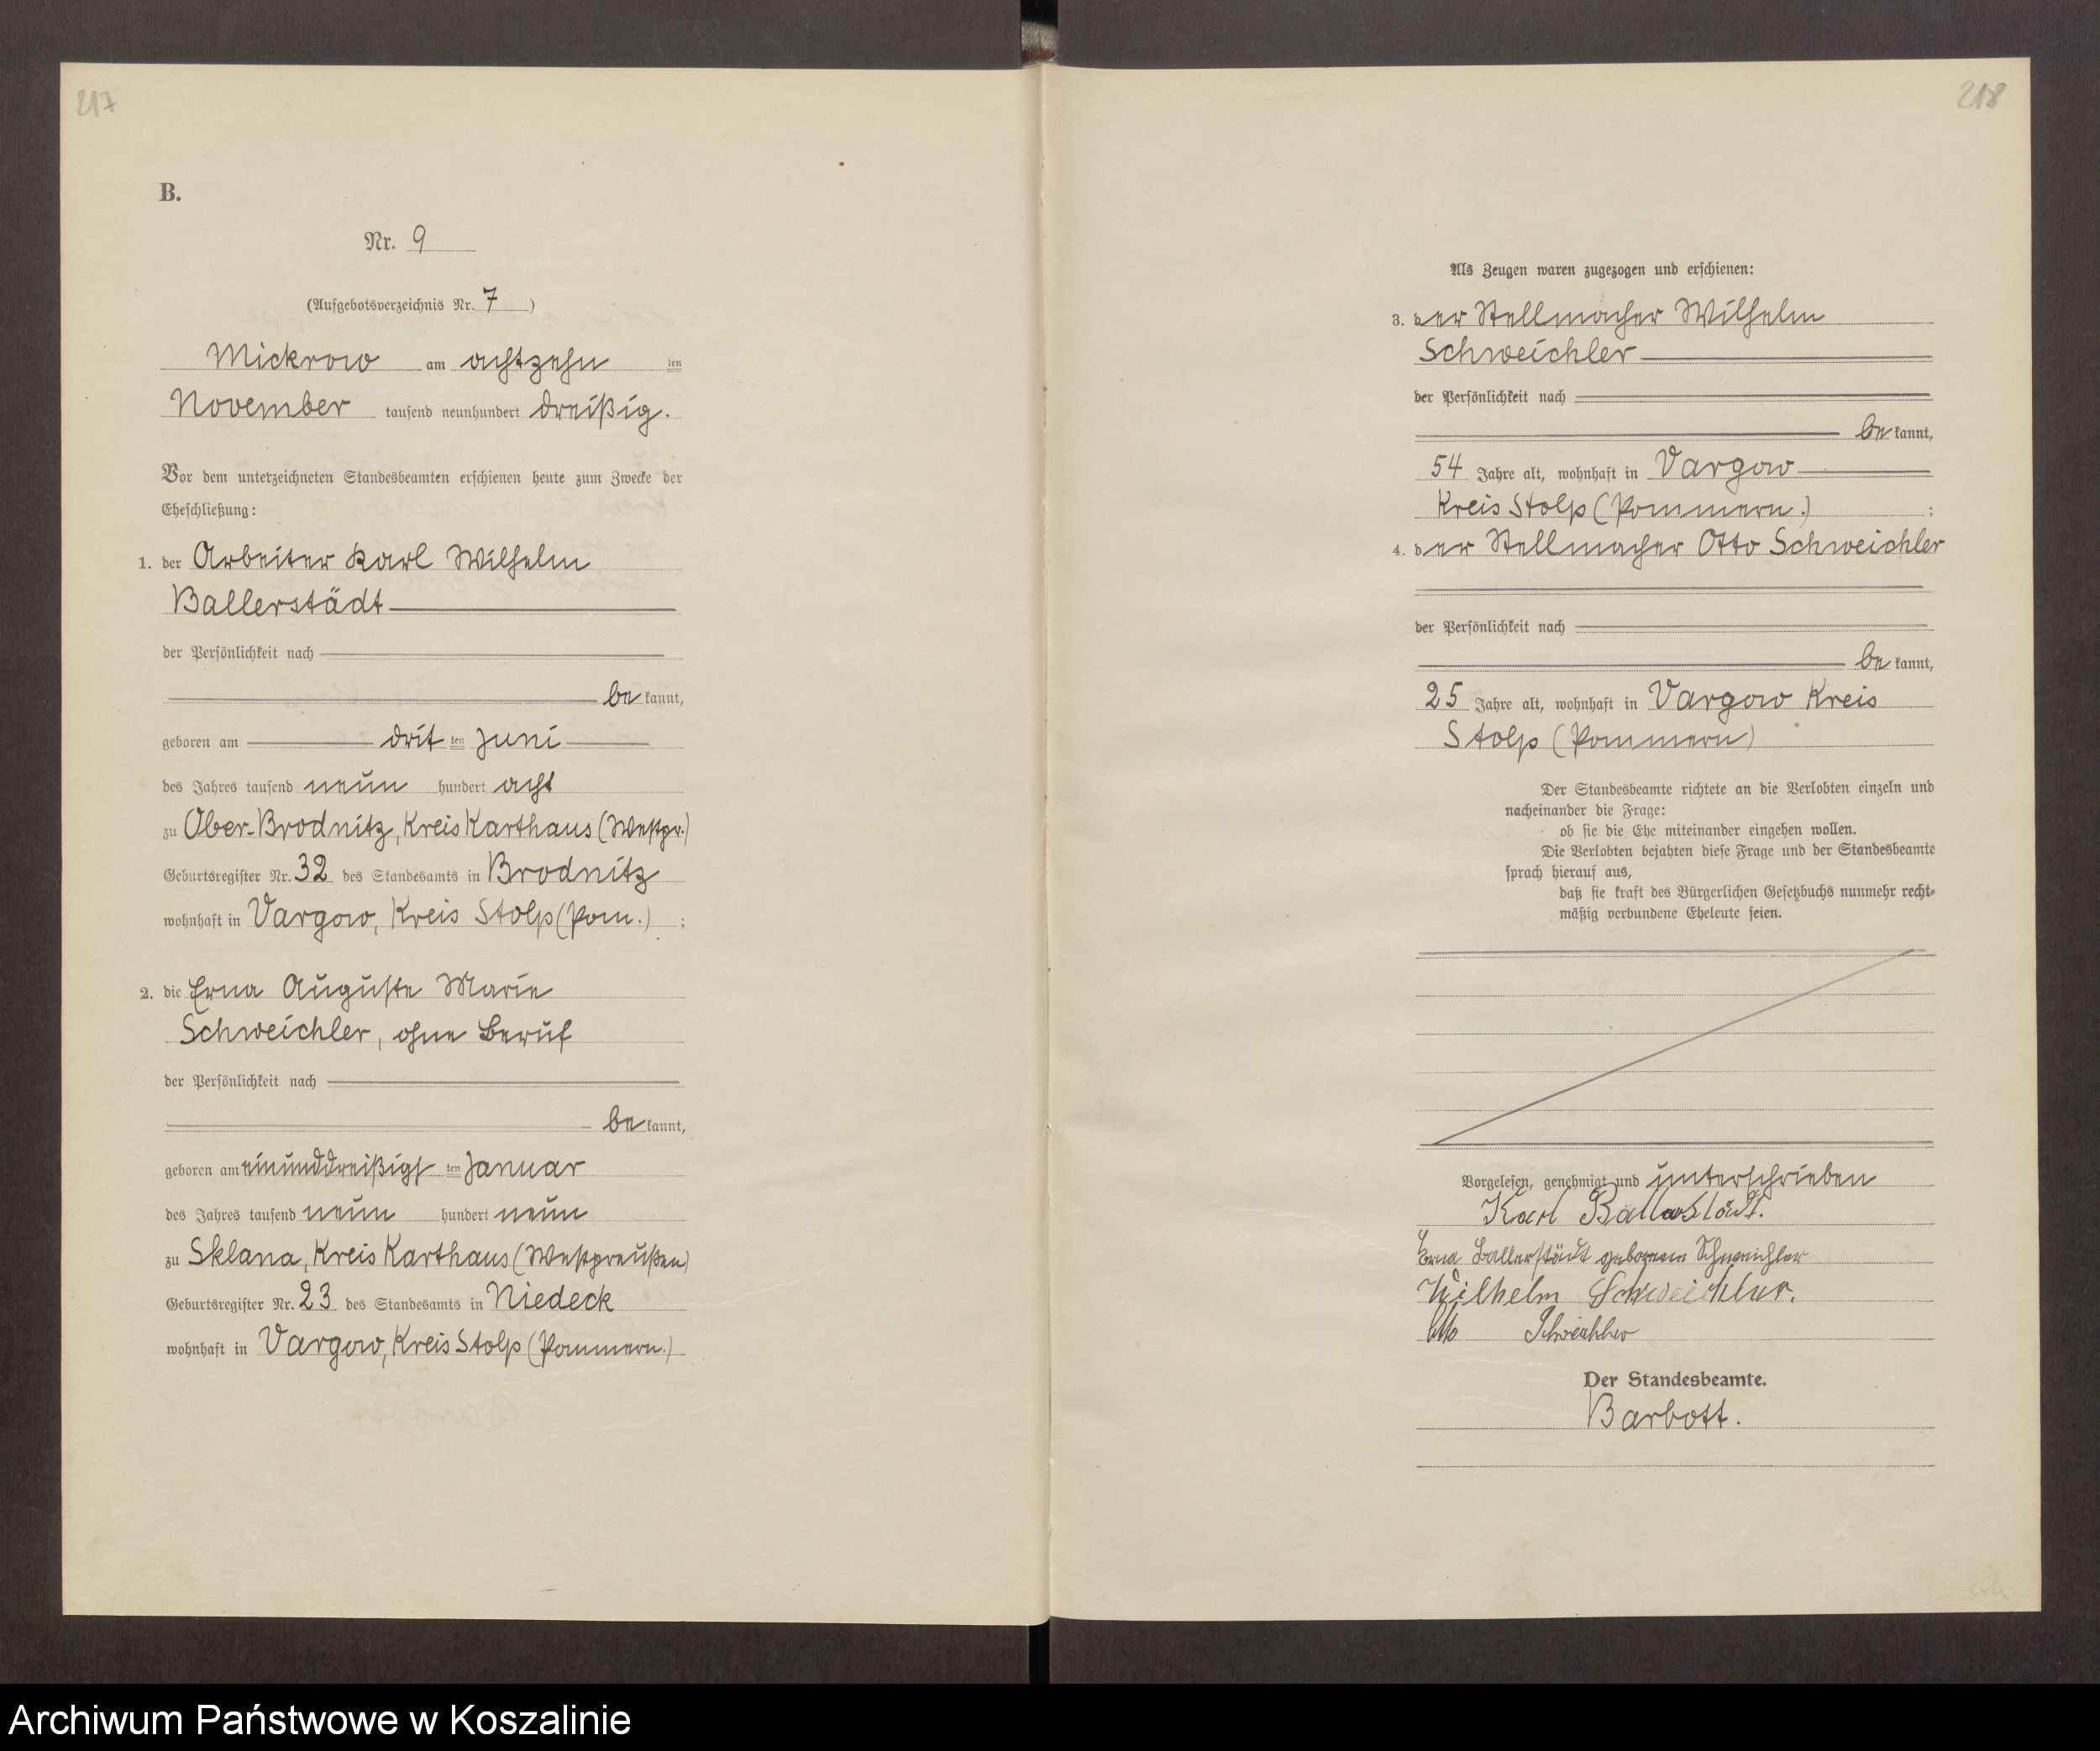 217
B.
Nr. 9
(Aufgebotsverzeichnis Nr. 7)
Mickrow am achtzehn ten
November tausend neunhundert dreißig.
Vor dem unterzeichneten Standesbeamten erschienen heute zum Zwecke der
Eheschließung:
1. der Arbeiter Karl Wilhelm
Ballerstädt
der Persönlichkeit nach
be kannt,
geboren am drit ten Juni
des Jahres tausend neun hundert acht
zu Ober-Brodnitz, Kreis Karthaus (Westpr.)
Geburtsregister Nr. 32 des Standesamts in Brodnitz
wohnhaft in Vargow, Kreis Stolp (Pom.) ;
2. die Erna Auguste Marie
Schweichler, ohne Beruf
der Persönlichkeit nach
be kannt,
geboren am einunddreißigs ten Januar
des Jahres tausend neun hundert neun
zu Sklana, Kreis Karthaus (Westpreußen)
Geburtsregister Nr. 23 des Standesamts in Niedeck
wohnhaft in Vargow, Kreis Stolp (Pommern.)
218
Als Zeugen waren zugezogen und erschienen:
3. der Stellmacher Wilhelm
Schweichler
der Persönlichkeit nach
be kannt,
54 Jahre alt, wohnhaft in Vargow
Kreis Stolp (Pommern.) ;
4. der Stellmacher Otto Schweichler
der Persönlichkeit nach
be kannt,
25 Jahre alt, wohnhaft in Vargow Kreis
Stolp (Pommern)
Der Standesbeamte richtete an die Verlobten einzeln und
nacheinander die Frage:
ob sie die Ehe miteinander eingehen wollen.
Die Verlobten bejahten diese Frage und der Standesbeamte
sprach hierauf aus,
daß sie kraft des Bürgerlichen Gesetzbuchs nunmehr recht-
mäßig verbundene Eheleute seien.
Vorgelesen, genehmigt und unterschrieben
Karl Ballerstädt.
Erna Ballerstädt geborene Schweichler
Wilhelm Schweichler.
Otto Schweichler
Der Standesbeamte.
Barbott.
Archiwum Państwowe w Koszalinie